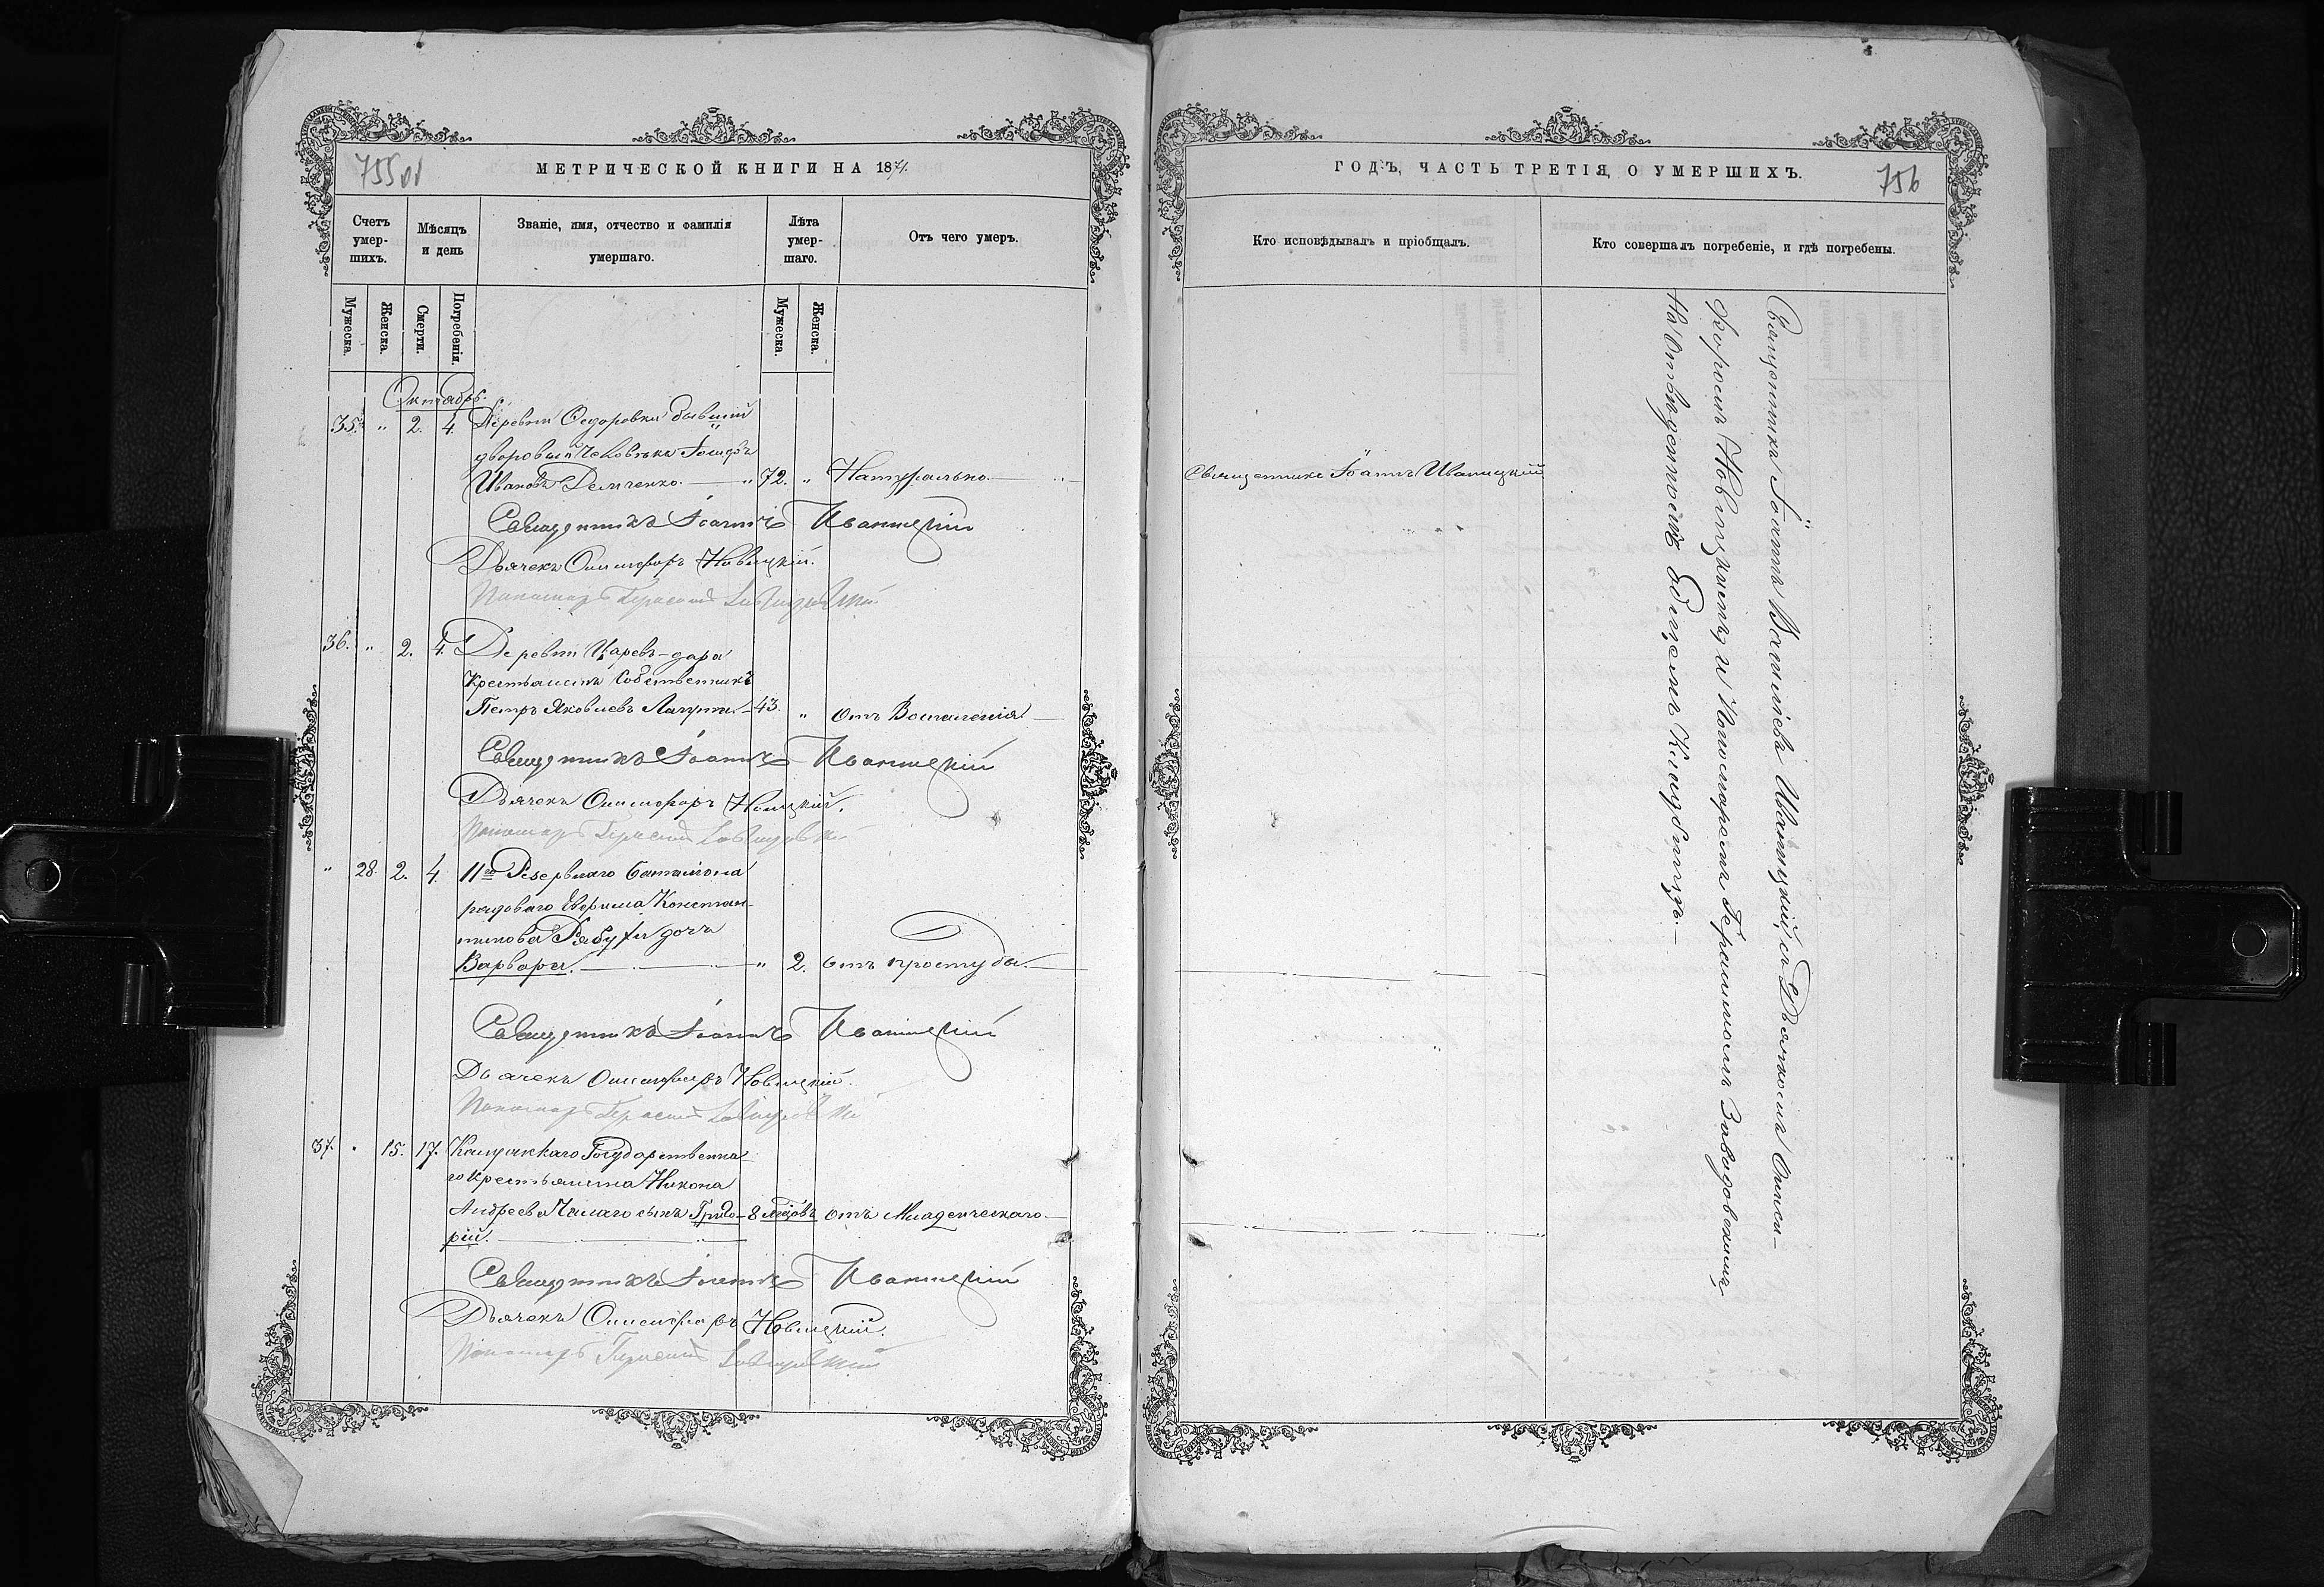 755об
МЕТРИЧЕСКОЙ КНИГИ НА 1871.
Счетъ умер-шихъ.
Мѣсяцъ и день
Званіе, имя, отчество и фамилія умершаго.
Лѣта умер-шаго.
Отъ чего умеръ.
Мужеска.
Женска.
Смерти.
Погребенія.
Мужеска.
Женска.
Октябрь.
35. " 2. 4. Деревни Федоровки бывшій
дворовый человѣкъ
Ивановъ Демченко. " 72. " Натурально.
Священникъ Іоаннъ Иваницкій
Дьячекъ Онисифоръ Новицкій.
Пономарь Герасимъ Завадовскій
36. " 2. 4. Деревни Царевъ-дара
Крестьянинъ Собственникъ
Петръ Яковлевъ 43. " отъ Воспаленія
Священникъ Іоаннъ Иваницкій
Дьячекъ Онисифоръ Новицкій.
Пономарь Герасимъ Завадовскій
" 28. 2. 4. 11го Резервнаго баталіона
рядоваго Ефрима Констан-
тинова дочь
Варвара. " 2. отъ простуды.
Священникъ Іоаннъ Иваницкій
Дьячекъ Онисифоръ Новицкій.
Пономарь Герасимъ Завадовскій
37. " 15. 17. Государственна-
го крестьянина Никона
Андреева сынъ Григо- 8 мѣсяцовъ отъ Младенческаго
рій.
Священникъ Іоаннъ Иваницкій
Дьячекъ Онисифоръ Новицкій.
Пономарь Герасимъ Завадовскій
ГОДЪ, ЧАСТЬ ТРЕТІЯ, О УМЕРШИХЪ.
756
Кто исповѣдывалъ и пріобщалъ.
Кто совершалъ погребеніе, и гдѣ погребены.
Священникъ Іоаннъ Иваницкій
Священникъ Іоаннъ Васильевъ Иваницкій, съ Дьячкомъ Ониси-
форомъ Новицкимъ и Пономаремъ Герасимомъ Завадовскимъ
на отведенномъ общемъ Кладбищѣ.